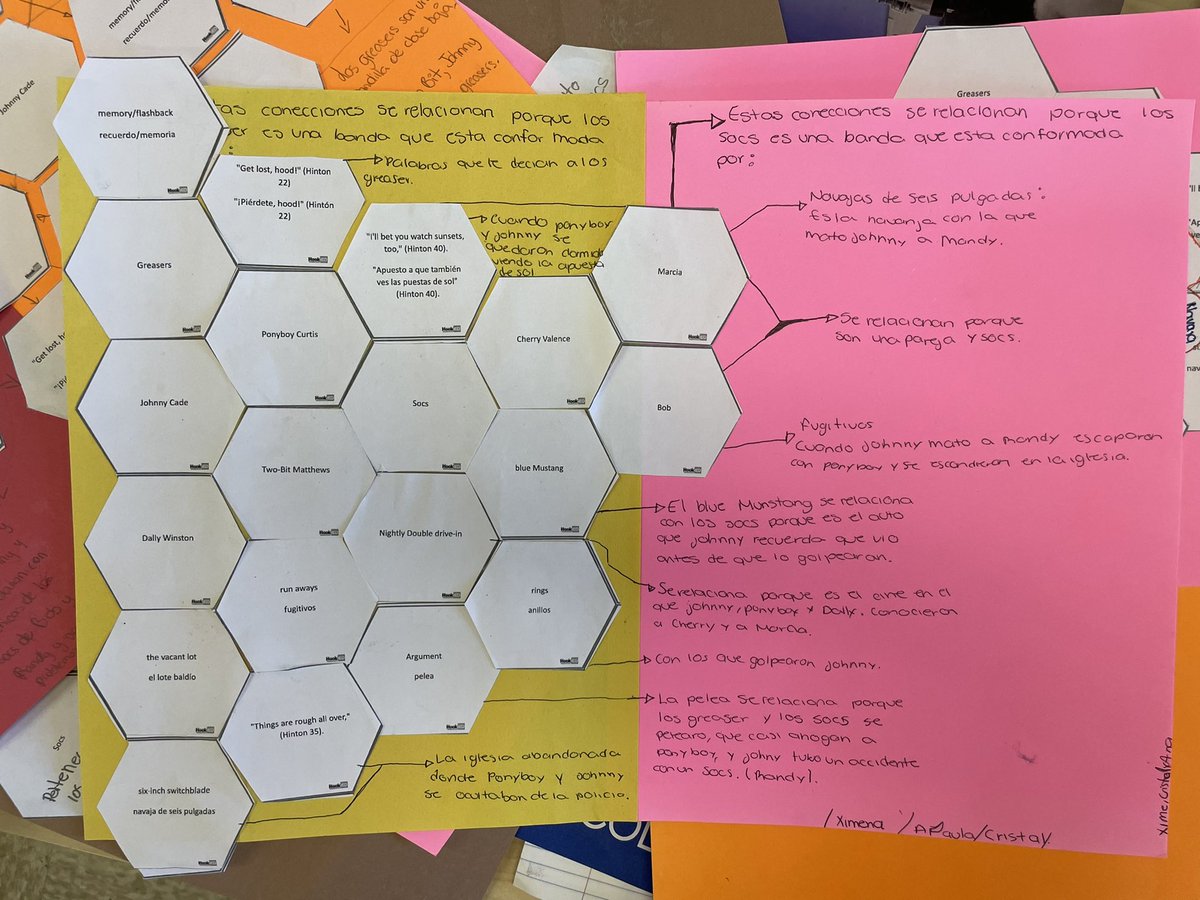 memory/flashback
recuerdo/memoria
Greasers
Johnny Cade
Dally Winston
the vacant lot
el lote baldío
six-inch switchblade
navaja de seis pulgadas
"Get lost, hood!" (Hinton
22)
"¡Piérdete, hood!" (Hintón
22)
Ponyboy Curtis
Two-Bit Matthews
run aways
fugitivos
"Things are rough all over,"
(Hinton 35).
"I'll bet you watch sunsets,
too," (Hinton 40).
"Apuesto a que también
ves las puestas de sol"
(Hinton 40).
Socs
Nightly Double drive-in
Argument
pelea
Cherry Valence
blue Mustang
rings
anillos
Marcia
Bob
conecciones se relacionan porque los
es una banda que esta conformada
:
Palabras que le decian a los
greaser.
Cuando ponyboy
y johnny se
quedaron
la apuesta
de sol
La iglesia abandonada
donde Ponyboy y Johnny
se ocultaban de la policia.
Estas conecciones se relacionan porque los
socs es una banda que esta conformada
por:
Navajas de seis pulgadas:
Es la navanja con la que
mato johnny a Randy.
Se relacionan porque
son una pareja y socs.
Fugitivos
Cuando Johnny mato a Randy escaparon
con ponyboy y se escondieron en la iglesia.
El blue Munstang se relaciona
con los socs porque es el auto
que johnny recuerda que vio
antes de que lo golpearan.
Se relaciona porque es el cine en el
que johnny, ponyboy y Dally. Conocieron
a Cherry y a Marcia.
Con los que golpearon johnny.
La pelea se relaciona porque
los greaser y los socs se
pelearo, que casi ahogan a
ponyboy, y johny tuko un accidente
con un socs. (Randy).
/Ximena /APaula/Cristal
Greasers
memory/fl
recuerdo/mem
Johnny Cade
los greasers son un
Bit, Johnny
greasers.
"Get lost, h
"¡Pi
Socs
COL